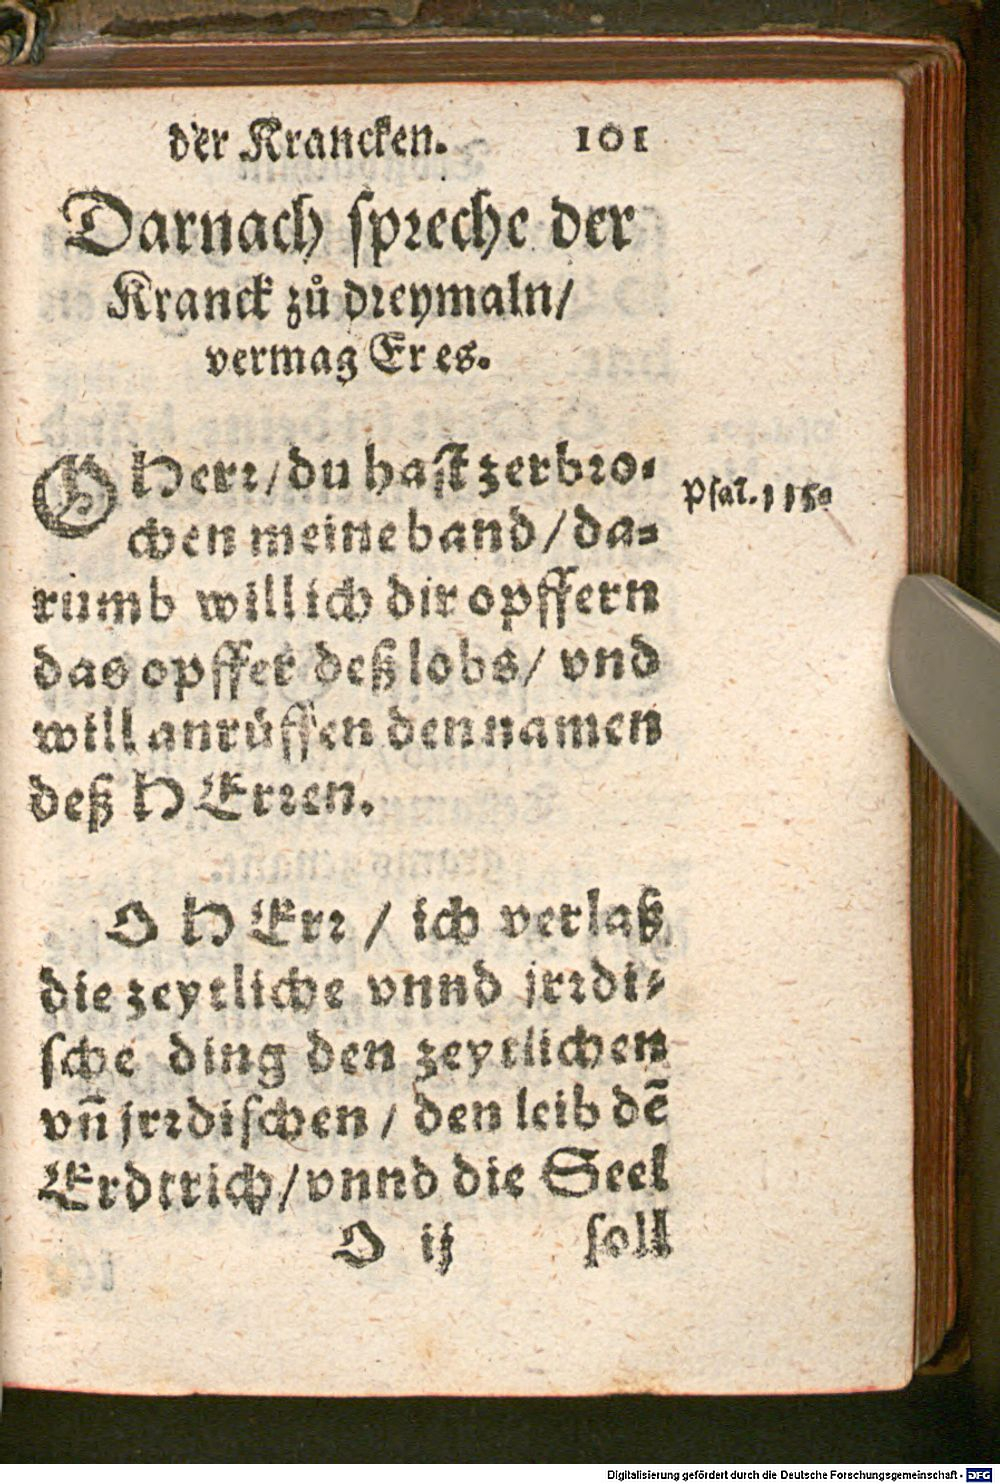 der Krancken. 101
Darnach spreche der
Kranck zů dreymaln/
vermag Er es.
O Herr/ du hast zerbro-
chen meine band/ da-
rumb will ich dir opffern
das opffer deß lobs/ vnd
will anrůffen den namen
deß HErren.
Psal. 115.
O HErr / ich verlaß
die zeytliche vnnd jrrdi-
sche ding den zeytlichen
vñ jrrdischen/ den leib dē
Erdtrich/ vnnd die Seel
O ij soll
Digitalisierung gefördert durch die Deutsche Forschungsgemeinschaft - DFG